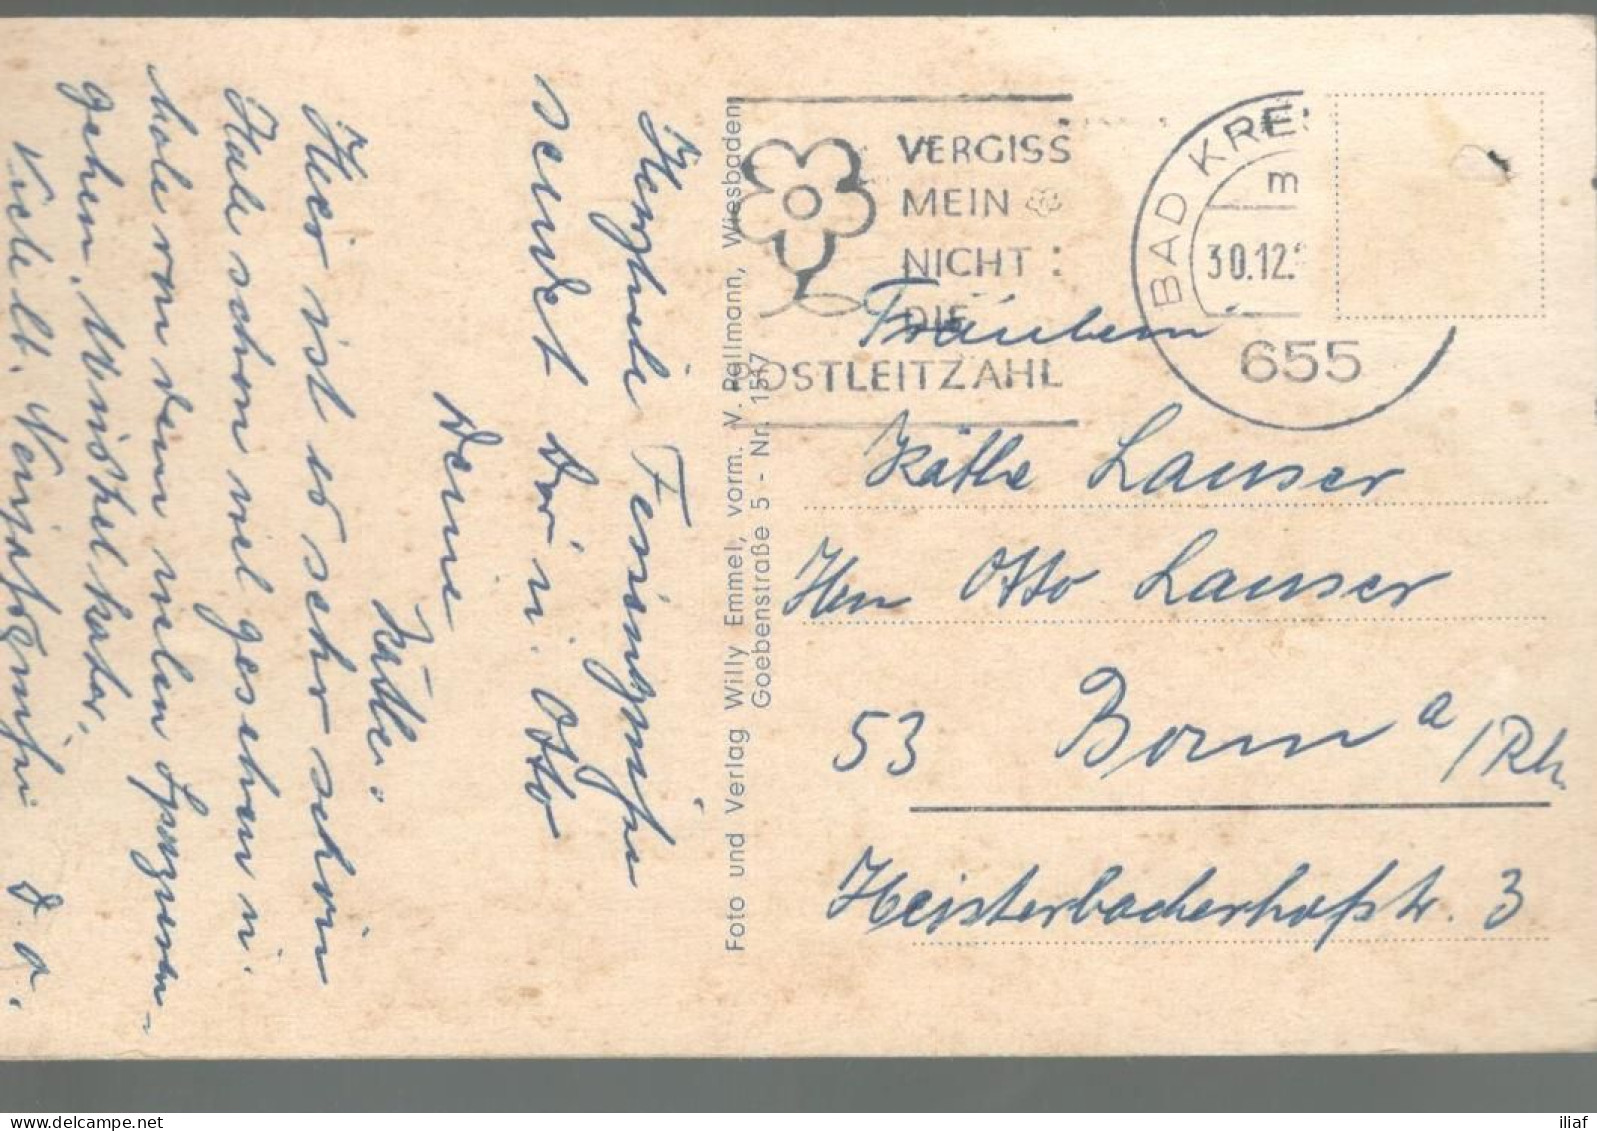 Herzliche Feriengrüße
sendet Dir u. Otto
Deine
Käthe.
Hier ist es sehr schön
Habe schon viel gesehen u.
hole von dem vielen Spazieren-
gehen, Muskelkater.
Viele lb. Neujahrsgrüße D. O.
Foto und Verlag Willy Emmel, vorm. V. Pallmann, Wiesbaden,
Goebenstraße 5 - Nr. 1517
VERGISS
MEIN
NICHT :
DIE
POSTLEITZAHL
BAD KRE
m
30.12.
655
Fräulein
Käthe Lauser
Herrn Otto Lauser
53 Bonn a/Rh
Heisterbacherhofstr. 3
iliaf
delcampe.net